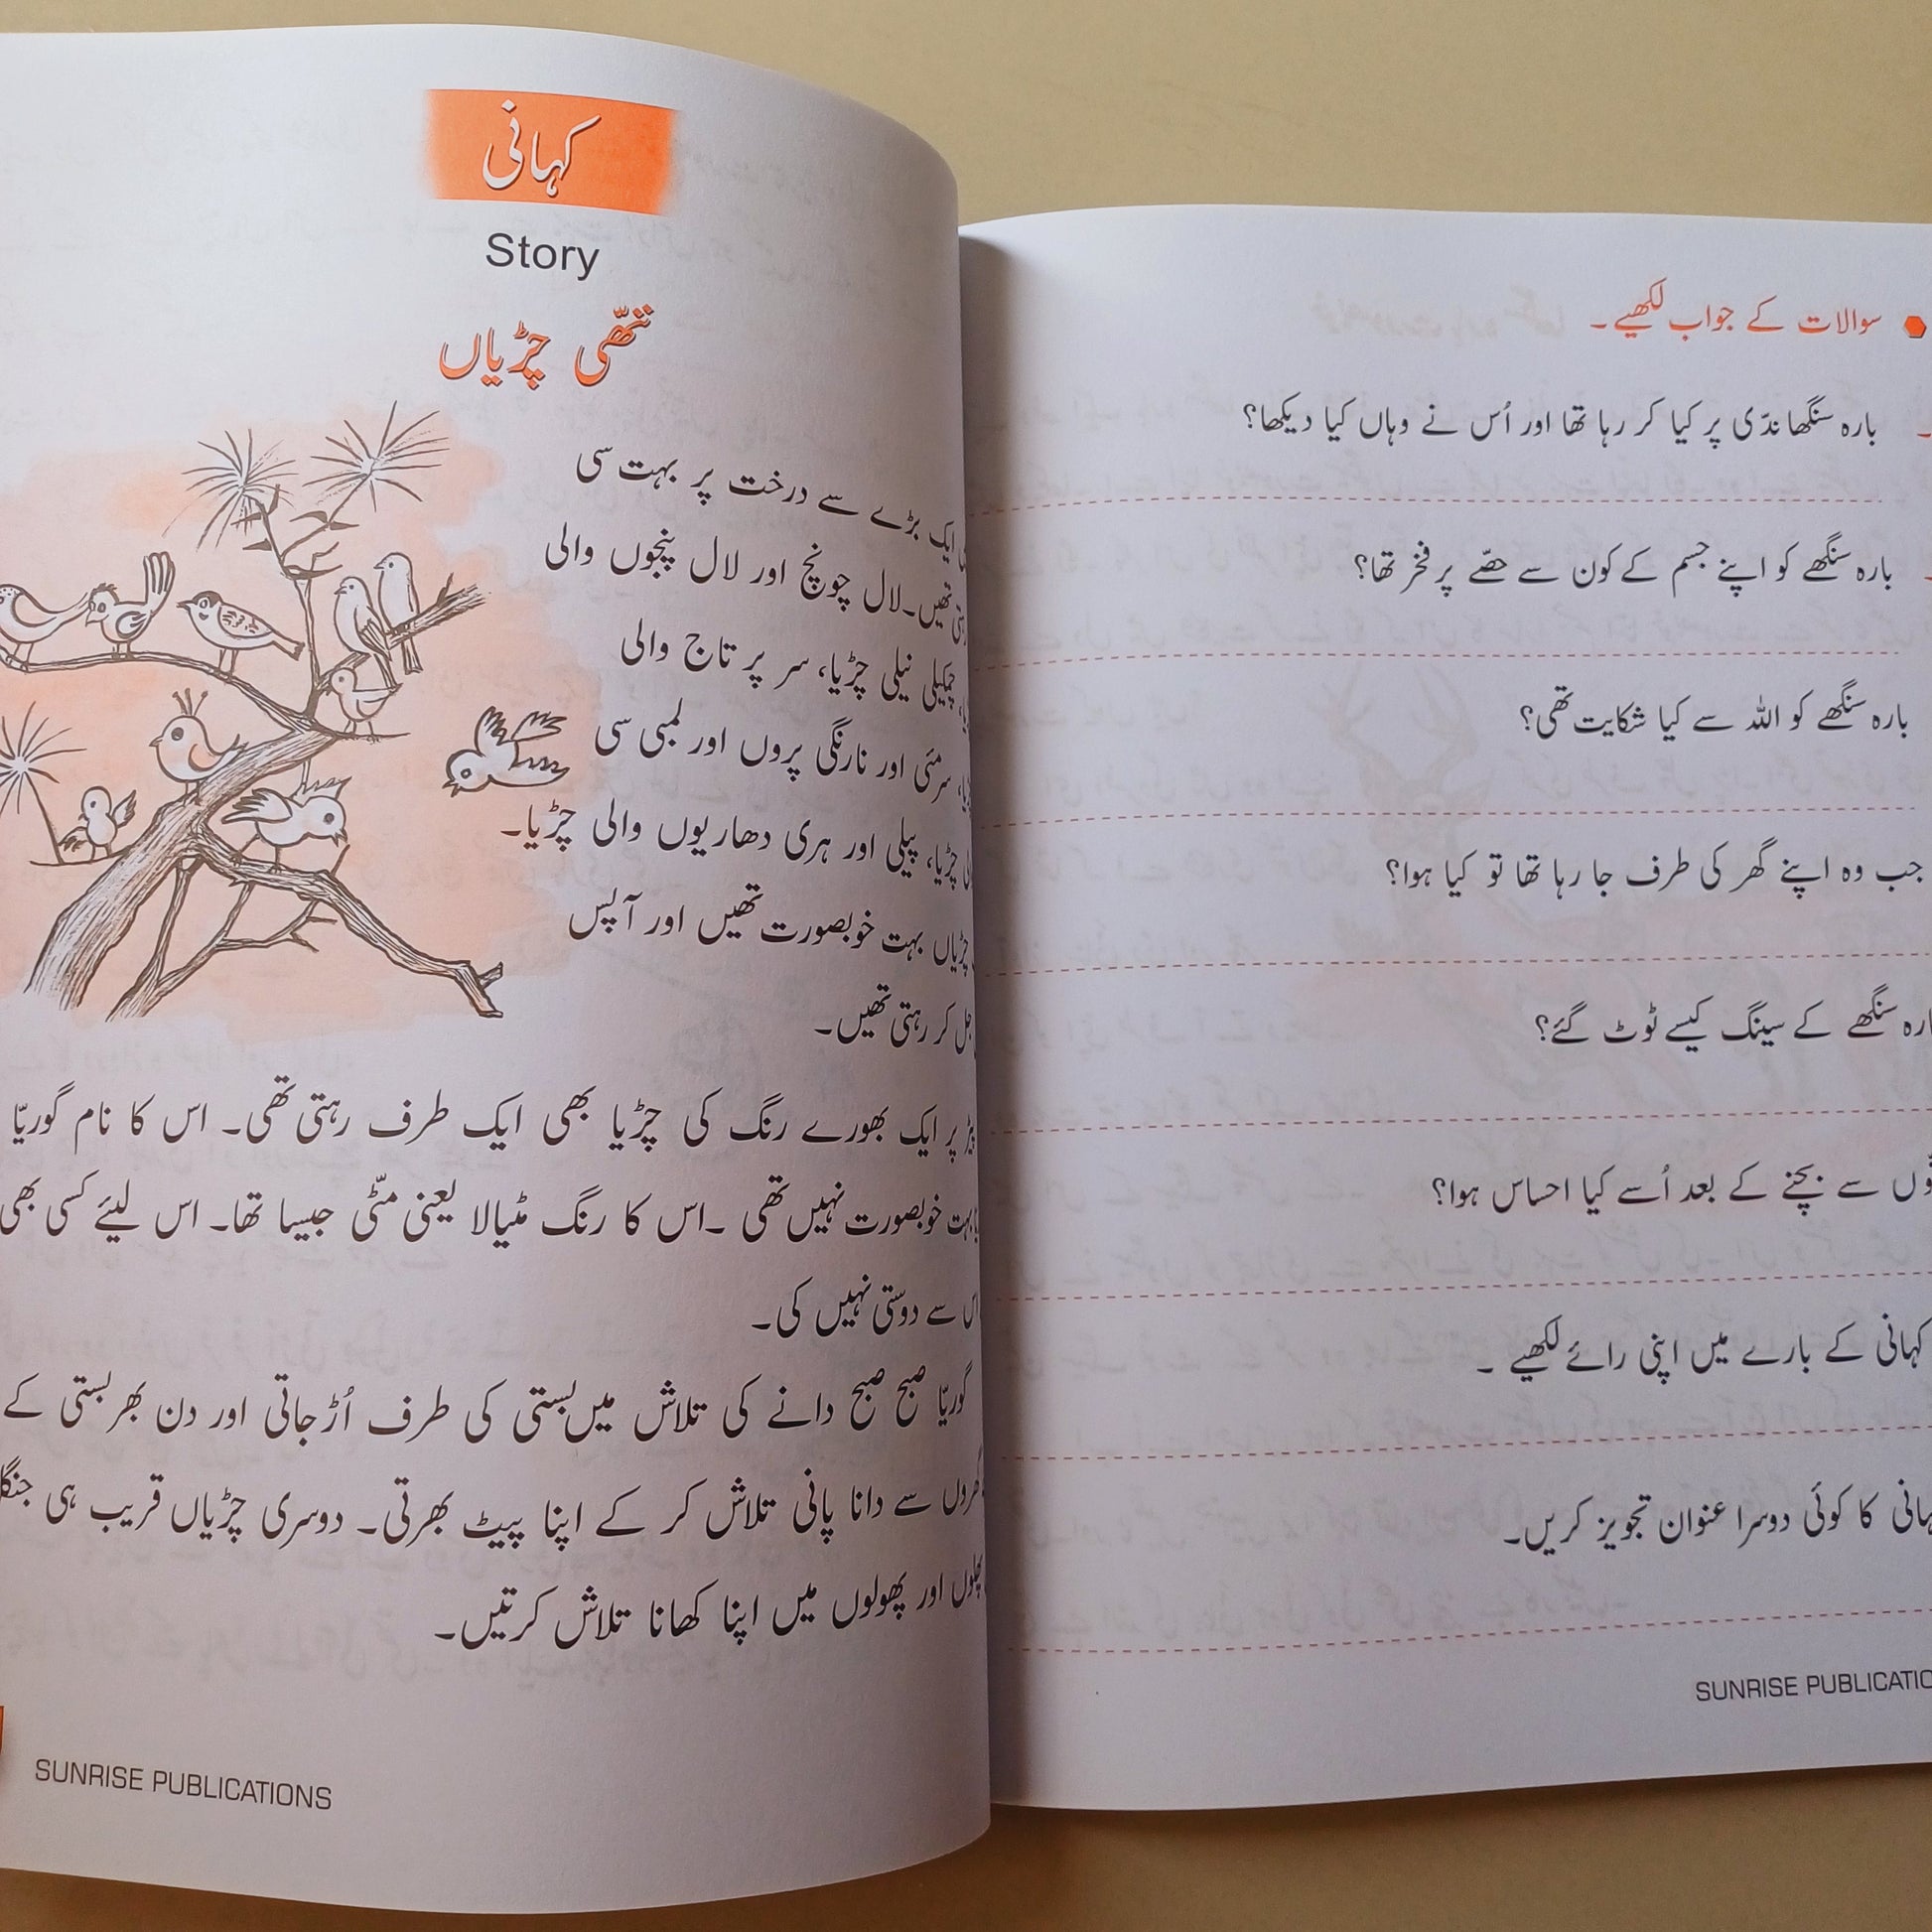 کہانی
Story
ننّھی چڑیاں
ایک بڑے سے درخت پر بہت سی
تھیں۔ لال چونچ اور لال پنجوں والی
چمکیلی نیلی چڑیا، سر پر تاج والی
سرمئی اور نارنگی پروں اور لمبی سی
چڑیا، پیلی اور ہری دھاریوں والی چڑیا۔
چڑیاں بہت خوبصورت تھیں اور آپس
جل کر رہتی تھیں۔
پیڑ پر ایک بھورے رنگ کی چڑیا بھی ایک طرف رہتی تھی۔ اس کا نام گوریّا
بہت خوبصورت نہیں تھی ۔اس کا رنگ مٹیالا یعنی مٹّی جیسا تھا۔ اس لیئے کسی بھی
اس سے دوستی نہیں کی۔
گوریّا صبح صبح دانے کی تلاش میں بستی کی طرف اُڑ جاتی اور دن بھر بستی کے
گھروں سے دانا پانی تلاش کر کے اپنا پیٹ بھرتی۔ دوسری چڑیاں قریب ہی
پھلوں اور پھولوں میں اپنا کھانا تلاش کرتیں۔
SUNRISE PUBLICATIONS
سوالات کے جواب لکھیے۔
بارہ سنگھا ندّی پر کیا کر رہا تھا اور اُس نے وہاں کیا دیکھا؟
بارہ سنگھے کو اپنے جسم کے کون سے حصّے پر فخر تھا؟
بارہ سنگھے کو اللہ سے کیا شکایت تھی؟
جب وہ اپنے گھر کی طرف جا رہا تھا تو کیا ہوا؟
سنگھے کے سینگ کیسے ٹوٹ گئے؟
سے بچنے کے بعد اُسے کیا احساس ہوا؟
کہانی کے بارے میں اپنی رائے لکھیے ۔
کا کوئی دوسرا عنوان تجویز کریں۔
SUNRISE PUBLICATIO